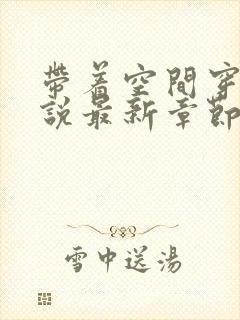 帶着空間穿
說最新章節
雪中送湯